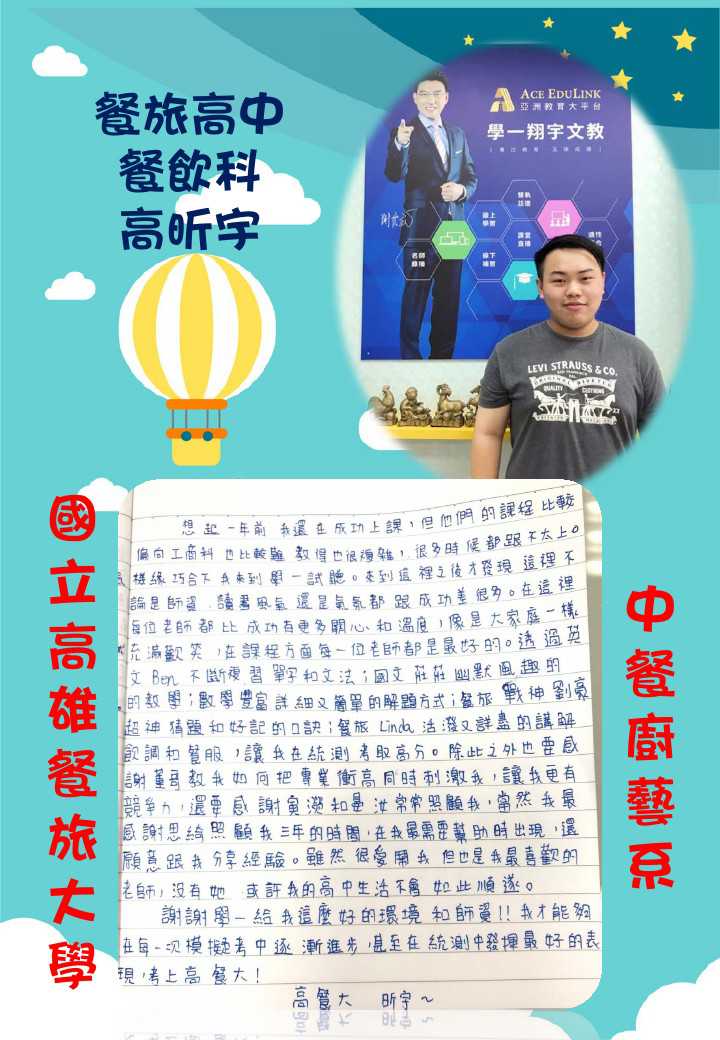 餐旅高中
餐飲科
高昕宇
ACE EDULINK
亞洲教育大平台
學一翔宇文教
雙軌
線上
學習
課堂
直播
名師
線下
適性
LEVI STRAUSS & CO.
QUALITY
CLOTHING
國立高雄餐旅大學
中餐廚藝系
想起一年前 我還在成功上課，但他們的課程比較
偏向工商科 也比較難 教得也很複雜，很多時候都跟不太上。
機緣巧合下 我來到學一試聽。來到這裡之後才發現 這裡不
論是師資、讀書風氣 還是氣氛都 跟成功差很多。在這裡
每位老師都比成功有更多關心和溫度，像是大家庭一樣
充滿歡笑，在課程方面每一位老師都是最好的。透過英
文 Ben 不斷複習單字和文法；國文莊莊幽默風趣的
的教學；數學豐富詳細又簡單的解題方式；餐旅 戰神劉豪
超神猜題和好記的口訣；餐旅 Linda 活潑又詳盡的講解
飲調和餐服，讓我在統測考取高分。除此之外也要感
謝董哥教我如何把專業衝高同時刺激我，讓我更有
競爭力，還要感謝 和 汝常常照顧我，當然我最
感謝思綺照顧我三年的時間，在我最需要幫助時出現，還
願意跟我分享經驗。雖然很愛鬧我 但也是我最喜歡的
老師，沒有她 或許我的高中生活不會 如此順遂。
謝謝學一給我這麼好的環境和師資!! 我才能夠
在每一次模擬考中逐漸進步，甚至在統測中發揮最好的表
現，考上高餐大！
高餐大 昕宇～